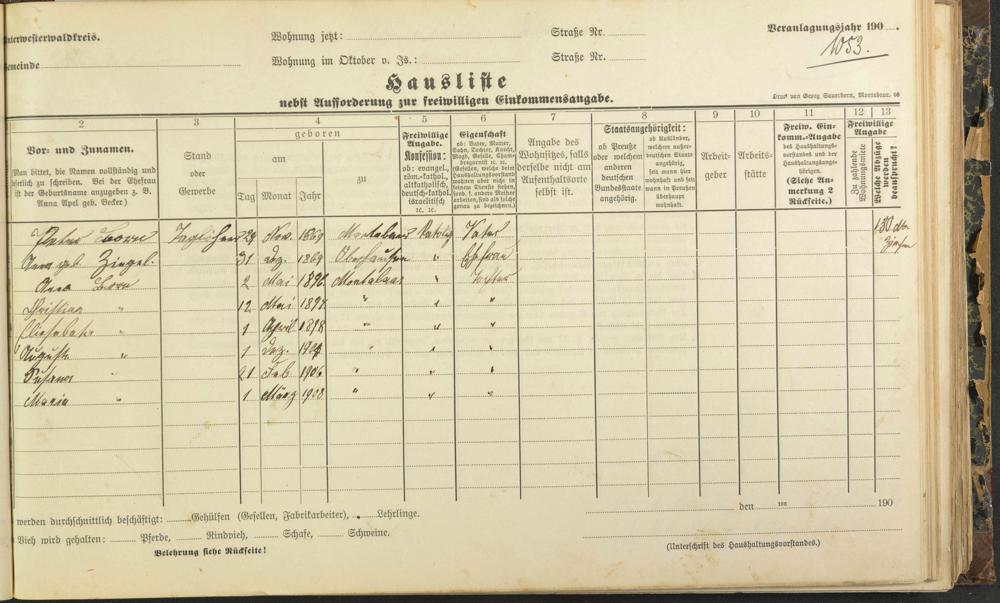 Unterwesterwaldkreis.
Wohnung jetzt: Straße Nr.
Veranlagungsjahr 190 .
1053.
Gemeinde
Wohnung im Oktober v. Js.: Straße Nr.
Hausliste
nebst Aufforderung zur freiwilligen Einkommensangabe.
Druck von Georg Sauerborn, Montabaur.
2 3 4 5 6 7 8 9 10 11 12 13
Vor- und Zunamen.
Man bittet, die Namen vollständig und
leserlich zu schreiben. Bei der Ehefrau
ist der Geburtsname anzugeben z. B.
Anna Apel geb. Becker.)
Stand
oder
Gewerbe
geboren
am
Tag Monat Jahr
zu
Freiwillige
Angabe.
Konfession:
ob: evangel.,
röm.-kathol.,
altkatholisch,
deutsch-kathol.
israelitisch
rc. rc.
Eigenschaft
ob: Vater, Mutter,
Sohn, Tochter, Knecht,
Magd, Geselle, Cham-
bregarnist rc. rc.
(Gesellen, welche beim
Haushaltungsvorstand
wohnen aber nicht in
seinem Dienste stehen,
sowie andere Mieter
arbeiten, sind als solche
genau zu bezeichnen.)
Angabe des
Wohnsitzes, falls
derselbe nicht am
Aufenthaltsorte
selbst ist.
Staatsangehörigkeit:
ob Preuße
oder welchem
anderen
deutschen
Bundesstaate
angehörig.
ob Ausländer,
welchem außer-
deutschen Staate
angehörig,
seit wann hier
und seit wann
in Preußen
überhaupt
wohnhaft.
Arbeit-
geber
Arbeits-
stätte
Freiw. Ein-
komm.-Angabe
des Haushaltungs-
vorstandes und der
Haushaltungsange-
hörigen.
(Siehe An-
merkung 2
Rückseite.)
Freiwillige
Angabe
Zu zahlende
Wohnungsmiete
Welche Abzüge
werden
beansprucht?
Peter Born Taglöhner 29 Nov. 1869 Montabaur Katholig Vater 130 Mk
Zinsen
Anna geb. Ziegel. 31 Dez. 1869 Oberhausen " Ehefrau
Anna Born 2 Mai 1896 Montabaur " Tochter
Christina " 12 Mai 1897 " " "
Elisabeth " 1 April 1898 " " "
Auguste " 1 Dez. " " "
Susanna " 21 Feb 1906 " " "
Maria " 1 März 1908 " " "
werden durchschnittlich beschäftigt: Gehülfen (Gesellen, Fabrikarbeiter), Lehrlinge.
den ten 190
Vieh wird gehalten: Pferde, Rindvieh, Schafe, Schweine.
Belehrung siehe Rückseite!
(Unterschrift des Haushaltungsvorstandes.)